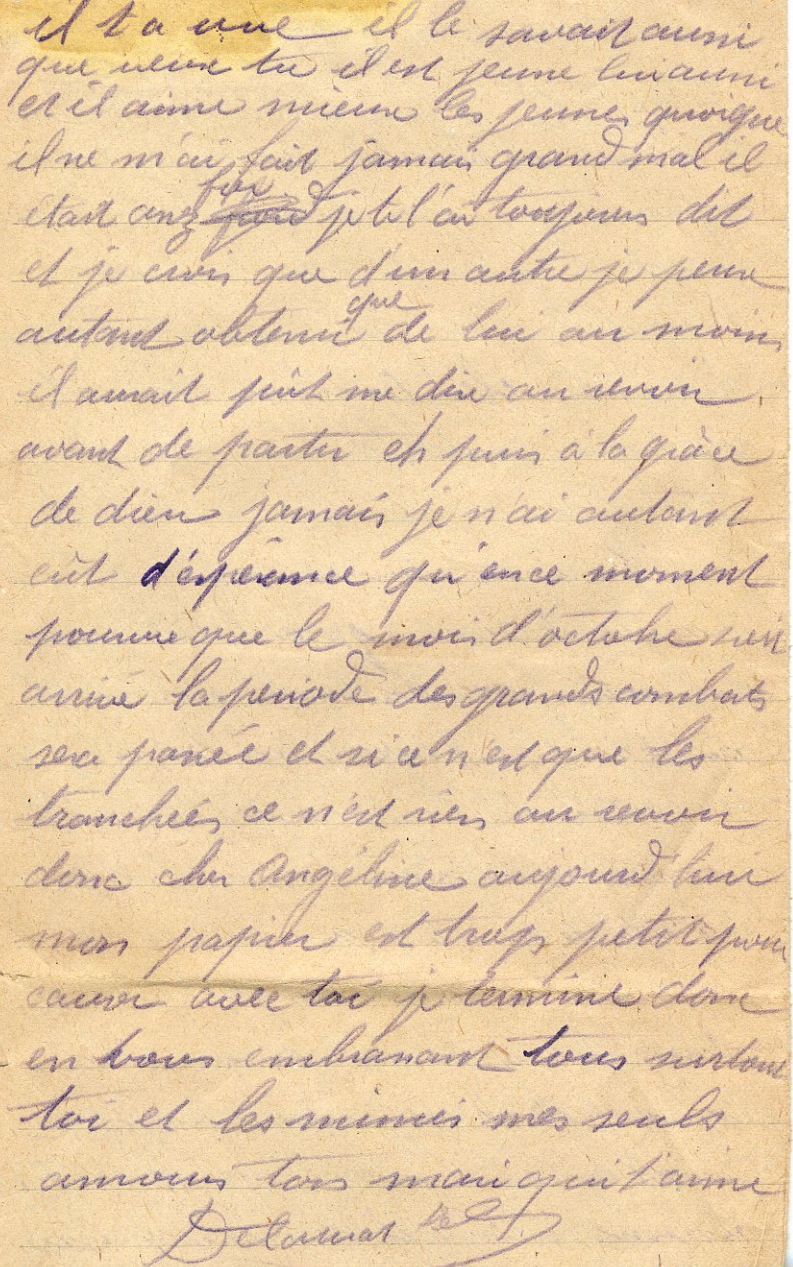 il t'a vue il le savait aussi
que veux tu il est jeune lui aussi
et il aime mieux les jeunes quoique
il ne m'ai fait jamais grand mal il
était assez fou je te l'ai toujours dit
et je crois que d'un autre je peux
autant obtenir que de lui au moins
il aurait pût me dire au revoir
avant de partir et puis à la grâce
de dieu jamais je n'ai autant
eût d'espérance qu'en ce moment
pourvu que le mois d'octobre soit
arrivé la periode des grands combats
sera passée et si ce n'est que les
tranchées ce n'est rien au revoir
donc cher Angéline aujourd'hui
mon papier est trop petit pour
causer avec toi je termine donc
en vous embrassant tous surtout
toi et les mimis mes seuls
amours ton mari qui t'aime